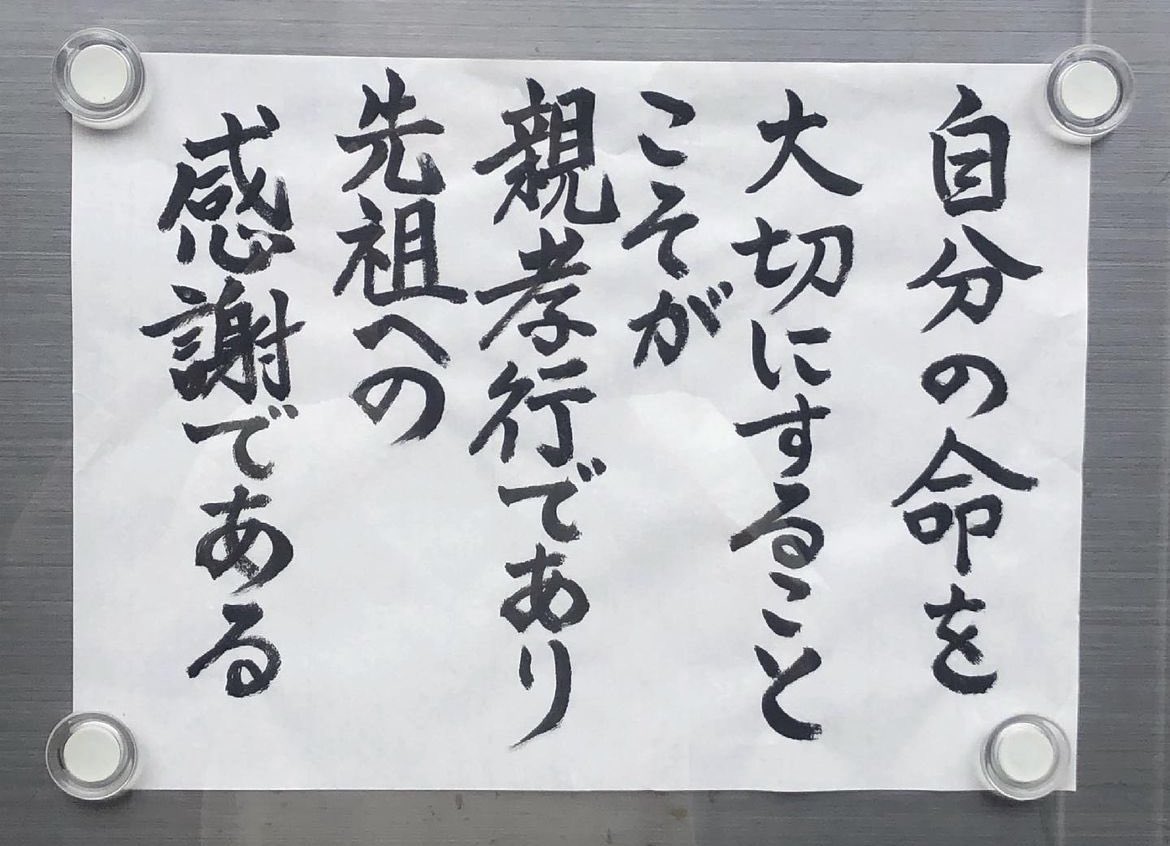 自分の命を
大切にすること
こそが
親孝行であり
先祖への
感謝である